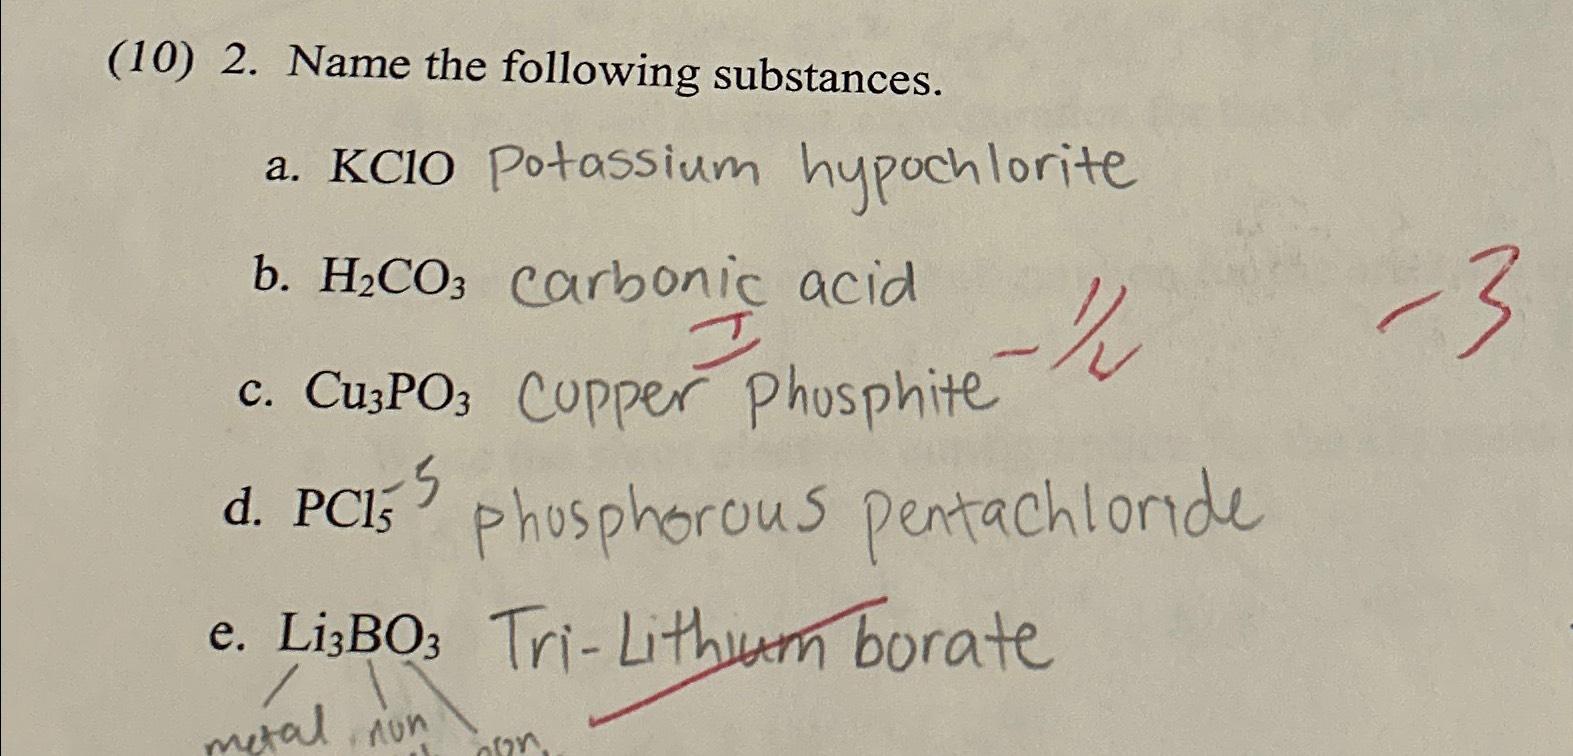 (10) 2. Name the following substances.
a. KClO Potassium hypochlorite
b. H₂CO₃ carbonic acid
-3
I
- 1/2
c. Cu₃PO₃ Copper Phosphite
-5
d. PCl₅ phosphorous pentachloride
e. Li₃BO₃ Tri-Lithium borate
metal non
non